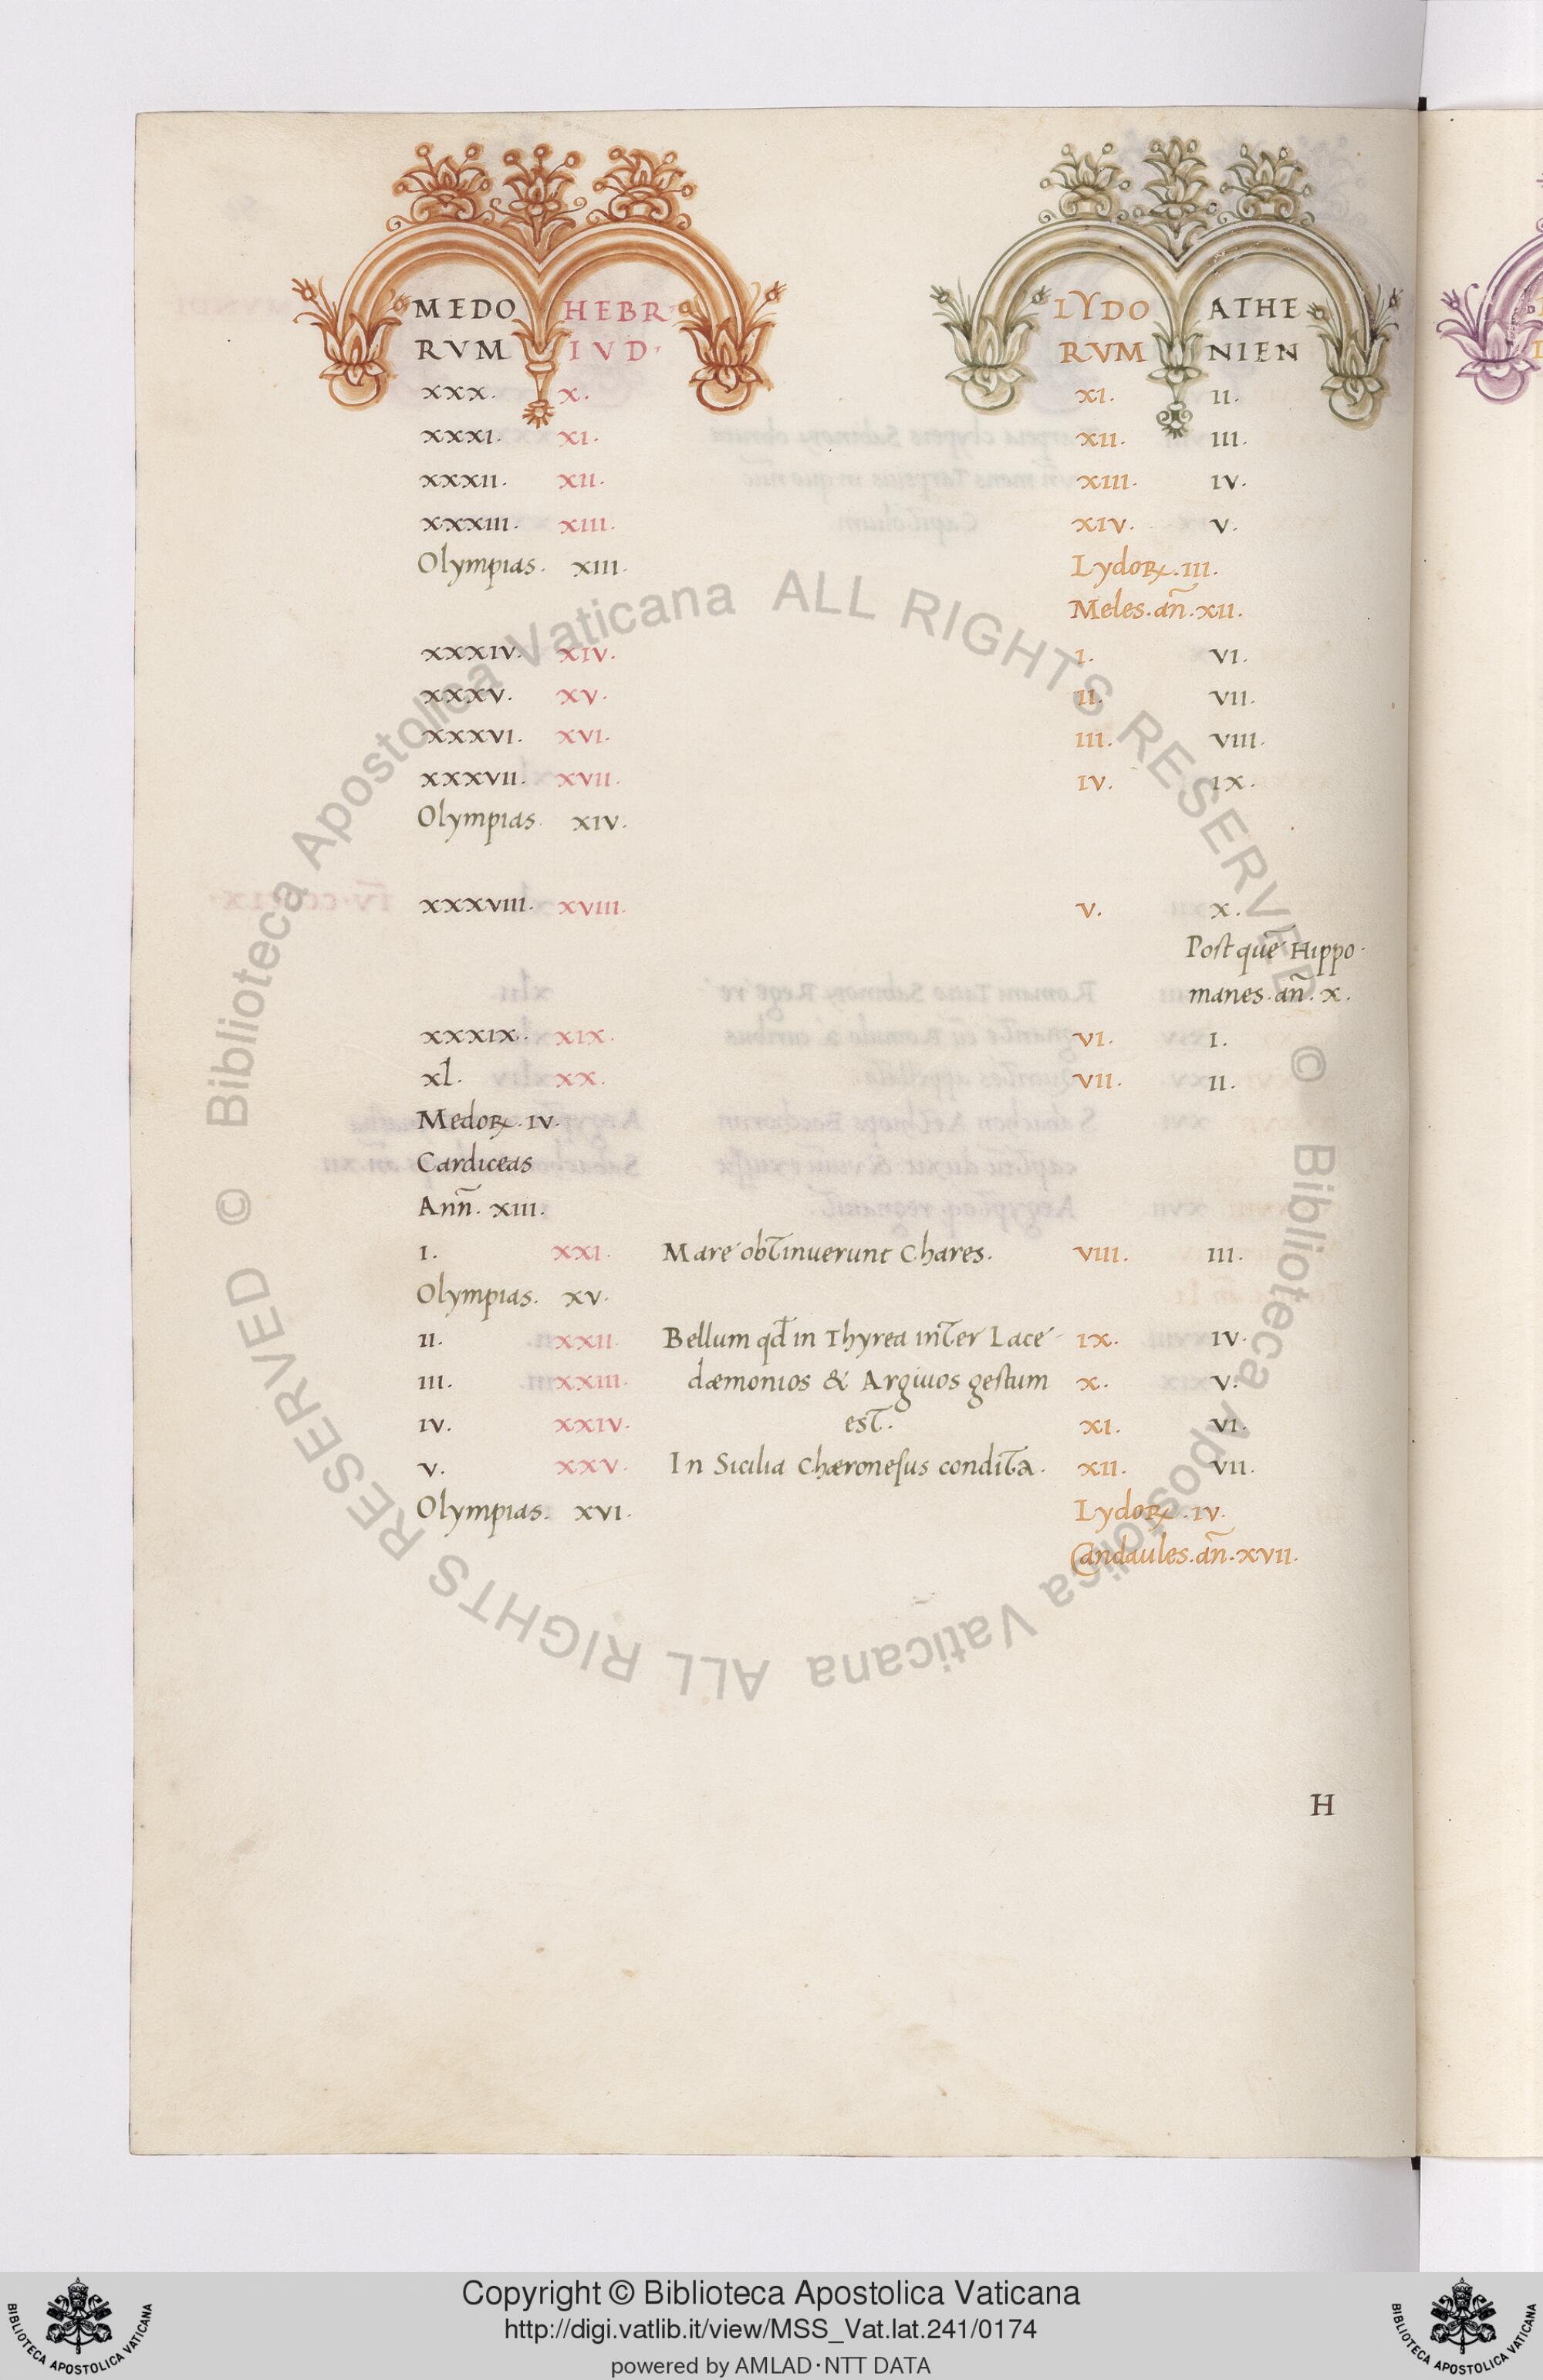 MEDO HEBR LYDO ATHE
RVM IVD· RVM NIEN
xxx. x. xi. ii.
xxxi. xi. xii. iii.
xxxii. xii. xiii. iv.
xxxiii. xiii. xiv. v.
Olympias. xiii. Lydoꝝ. iii.
Meles. añ. xii.
xxxiv. xiv. i. vi.
xxxv. xv. ii. vii.
xxxvi. xvi. iii. viii.
xxxvii. xvii. iv. ix.
Olympias. xiv.
xxxviii. xviii. v. x.
Post quē Hippo
manes. añ. x.
xxxix. xix. vi. i.
xl. xx. vii. ii.
Medoꝝ. iv.
Cardiceas
Añn. xiii.
i. xxi. Mare obtinuerunt Chares. viii. iii.
Olympias. xv.
ii. xxii. Bellum qđ in Thyrea inter Lace ix. iv.
iii. xxiii. dæmonios & Argiuos gestum x. v.
iv. xxiv. est. xi. vi.
v. xxv. In Sicilia Chæronesus condita. xii. vii.
Olympias. xvi. Lydoꝝ. iv.
Candaules. añ. xvii.
H
© Biblioteca Apostolica Vaticana ALL RIGHTS RESERVED
© Biblioteca Apostolica Vaticana ALL RIGHTS RESERVED
Copyright © Biblioteca Apostolica Vaticana
http://digi.vatlib.it/view/MSS_Vat.lat.241/0174
powered by AMLAD·NTT DATA
BIBLIOTECA APOSTOLICA VATICANA
BIBLIOTECA APOSTOLICA VATICANA